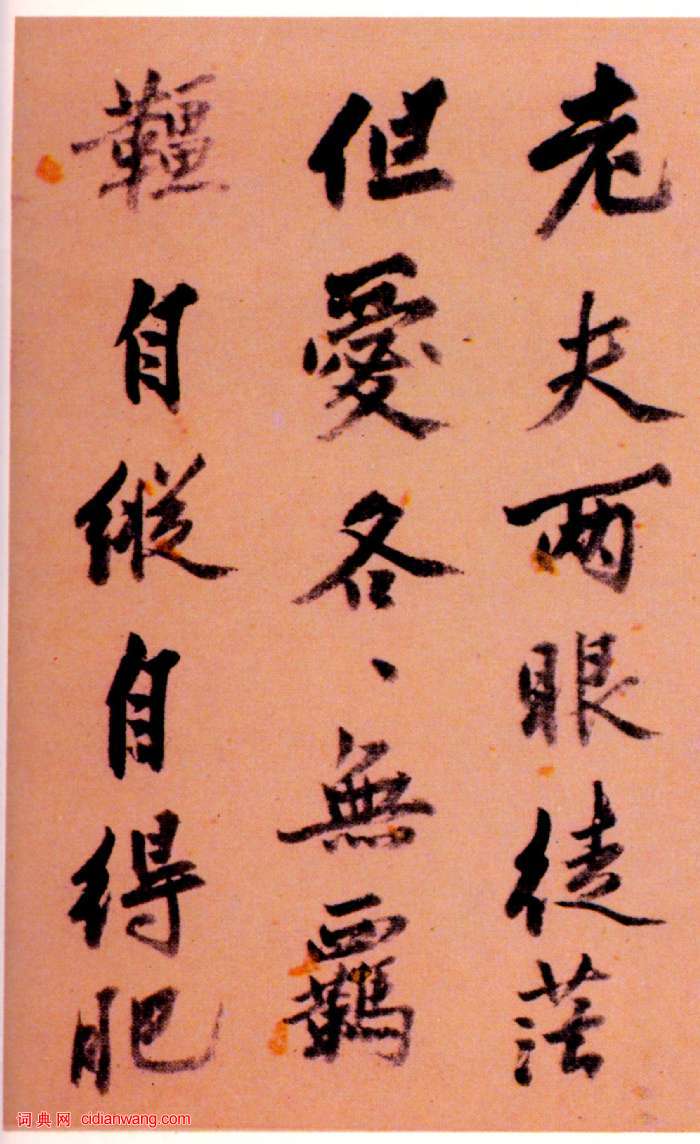 老夫两眼徒茫
但愛各、無羈
韁自縱自得肥
词典网 cidianwang.com